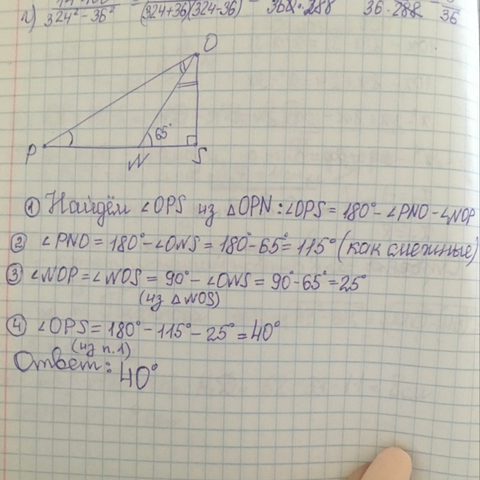 324² - 36² (324+36)(324-36) 368·288 36·288 36
O
65°
P N S
① Найдём ∠OPS из △OPN: ∠OPS = 180° - ∠PNO - ∠NOP
② ∠PNO = 180° - ∠ONS = 180° - 65° = 115° (как смежные)
③ ∠NOP = ∠NOS = 90° - ∠ONS = 90° - 65° = 25°
(из △NOS)
④ ∠OPS = 180° - 115° - 25° = 40°
(из п.1)
Ответ: 40°